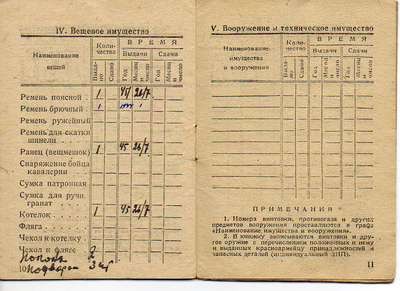 IV. Вещевое имущество
Наименование вещей
Количество
ВРЕМЯ
Выдачи
Сдачи
Выдано
Сдано
Год
Месяц и число
Год
Месяц и число
Ремень поясной 1 45 26/7
Ремень брючный 1
Ремень ружейный
Ремень для скатки
шинели
Ранец (вещмешок) 1 45 26/7
Снаряжение бойца
кавалерии
Сумка патронная
Сумка для ручн.
гранат
Котелок 1 45 26/7
Фляга
Чехол к котелку
Чехол к фляге
10
V. Вооружение и техническое имущество
Наименование
имущества
и вооружения
Количество
ВРЕМЯ
Выдачи
Сдачи
Выдано
Сдано
Год
Месяц и число
Год
Месяц и число
ПРИМЕЧАНИЯ
1. Номера винтовки, противогаза и других
предметов вооружения проставляются в графе
«Наименование имущества и вооружения».
2. В книжку записываются винтовки и дру-
гое оружие с перечислением положенных к нему
и выданных красноармейцу принадлежностей и
запасных деталей (индивидуальный ЗИП).
11